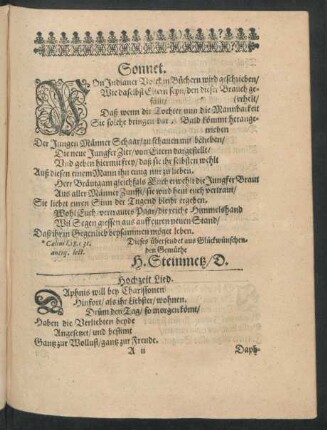 Sonnet.
VOn Indianer Volck in Büchern wird geschrieben/
Wie daselbst Eltern seyn/ den dieser Brauch ge-
fällt/ (erhelt/
Daß wenn der Tochter nun die Mannbarkeit
Sie solche bringen dar * Bald kömmt herange-
trieben
Der Jungen Männer Schaar/ zu schauen mit belieben/
Die neue Jungfer Zier/ von Eltern dargestellt/
Und geben hiermit frey/ daß sie ihr selbsten wehlt
Auß diesen einem Mann ihn ewig nun zu lieben.
Herr Bräutgam gleichfals Euch erwehlt die Jungfer Braut
Aus aller Männer Zunfft/ sie wird heut euch vertraut/
Sie liebet euren Sinn der Tugend bleibt ergeben.
Wohl Euch/ vertrautes Paar/ die reiche Himmelshand
Woll Segen giessen aus auff euren neuen Stand/
Daß ihr in Gegenlieb beysammen möget leben.
* Cœlius l. 18. c. 31.
antiq. lect.
Dieses übersendet aus Glückwünschen-
den Gemüthe
H. Steinmetz/ D.
Hochzeit Lied.
DAphnis will bey Charissonen/
Hinfort/ als ihr Liebster/ wohnen.
Drüm den Tag/ so morgen kömt/
Haben die Verliebten beyde
Angesetzet/ und bestimt
Gantz zur Wollust/ gantz zur Freude.
A ij
Daph-